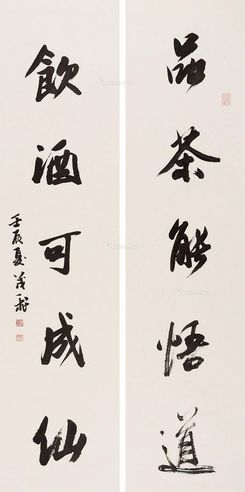 品茶能悟道
飲酒可成仙
壬辰夏